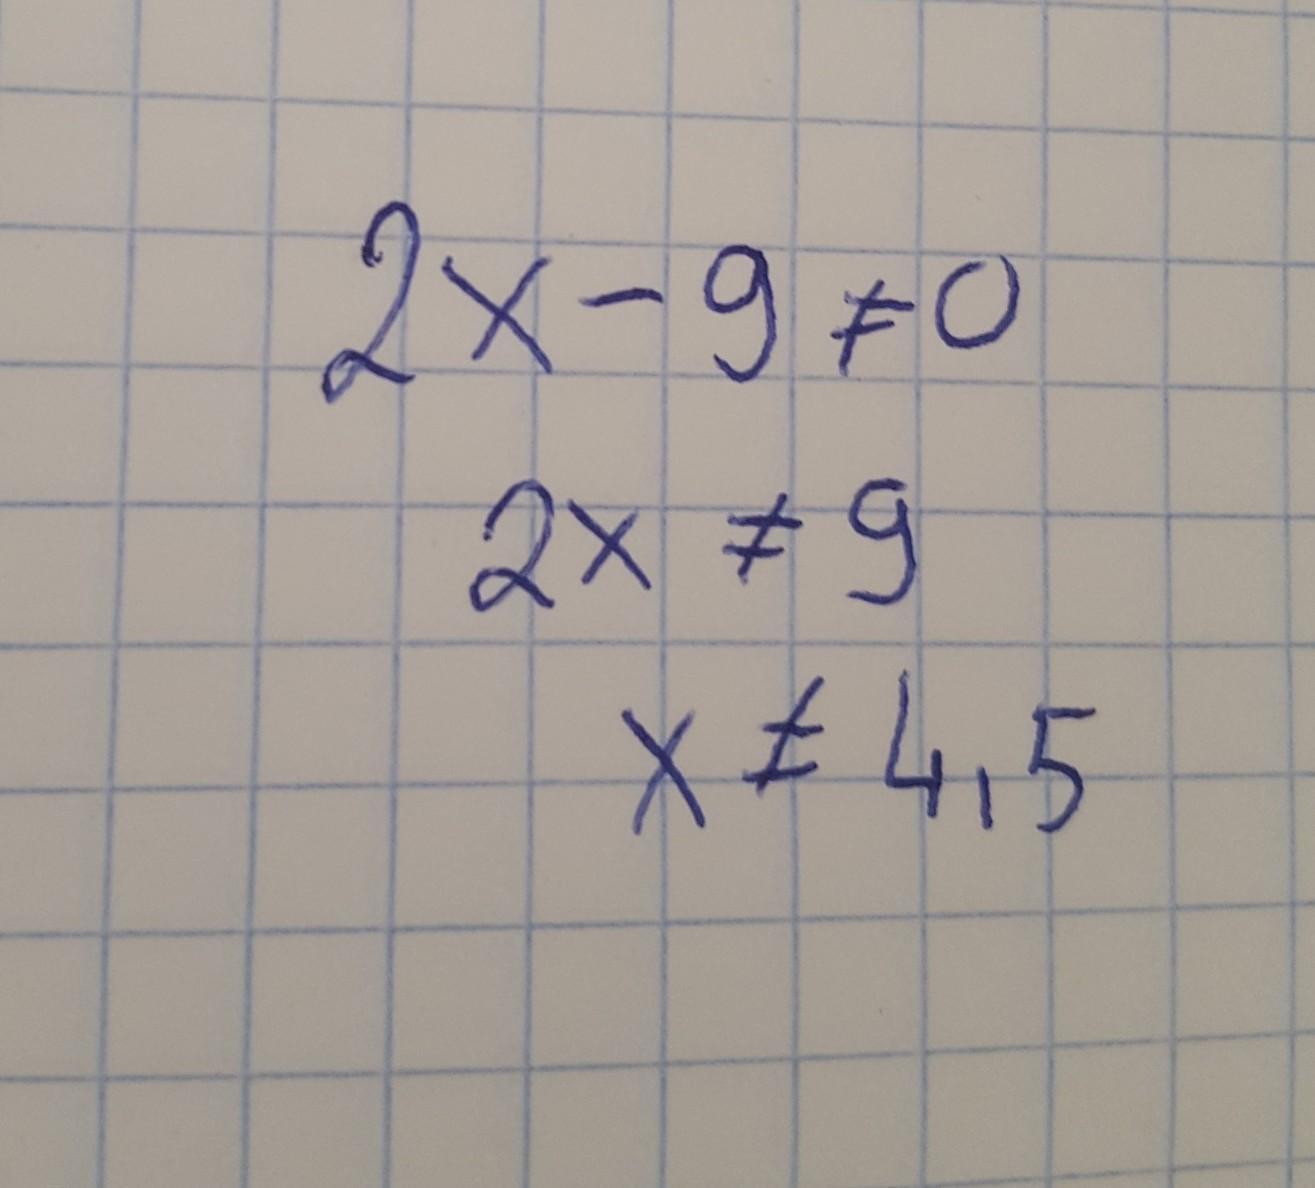 2x - 9 ≠ 0
2x ≠ 9
x ≠ 4,5